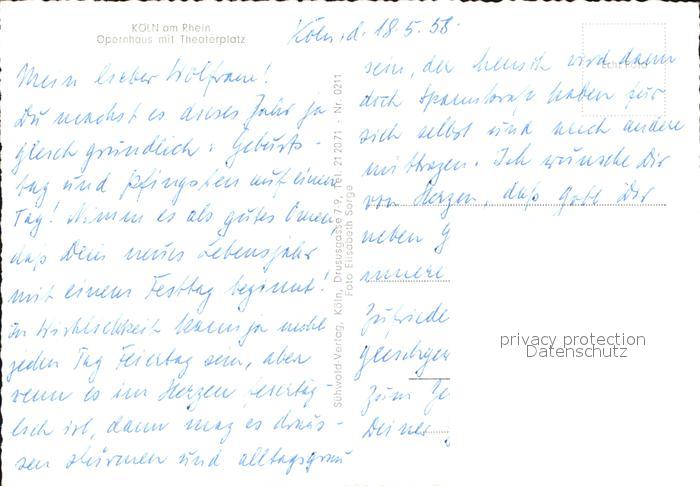 KÖLN am Rhein
Opernhaus mit Theaterplatz
Köln, d. 18.5.58.
Mein lieber Wolfram!
Du machst es dieses Jahr ja
gleich gründlich: Geburts-
tag und Pfingsten auf einem
Tag! Nimm es als gutes Omen,
daß Dein neues Lebensjahr
mit einem Festtag beginnt!
In Wirklichkeit kann ja nicht
jeden Tag Feiertag sein, aber
wenn es im Herzen feiertäg-
lich ist, dann mag es draus-
sen stürmen und alltagsgrau
Sühwold-Verlag, Köln, Drususgasse 7-9, Tel. 212071 - Nr. 0211
Foto Elisabeth Sorge
Echt Foto
sein, der Mensch wird dann
doch Spannkraft haben für
sich selbst und auch andere
mittragen. Ich wünsche Dir
von Herzen, daß Gott Dir
neben G
innere
Zufriede
Zum Ge
Deiner
privacy protection
Datenschutz